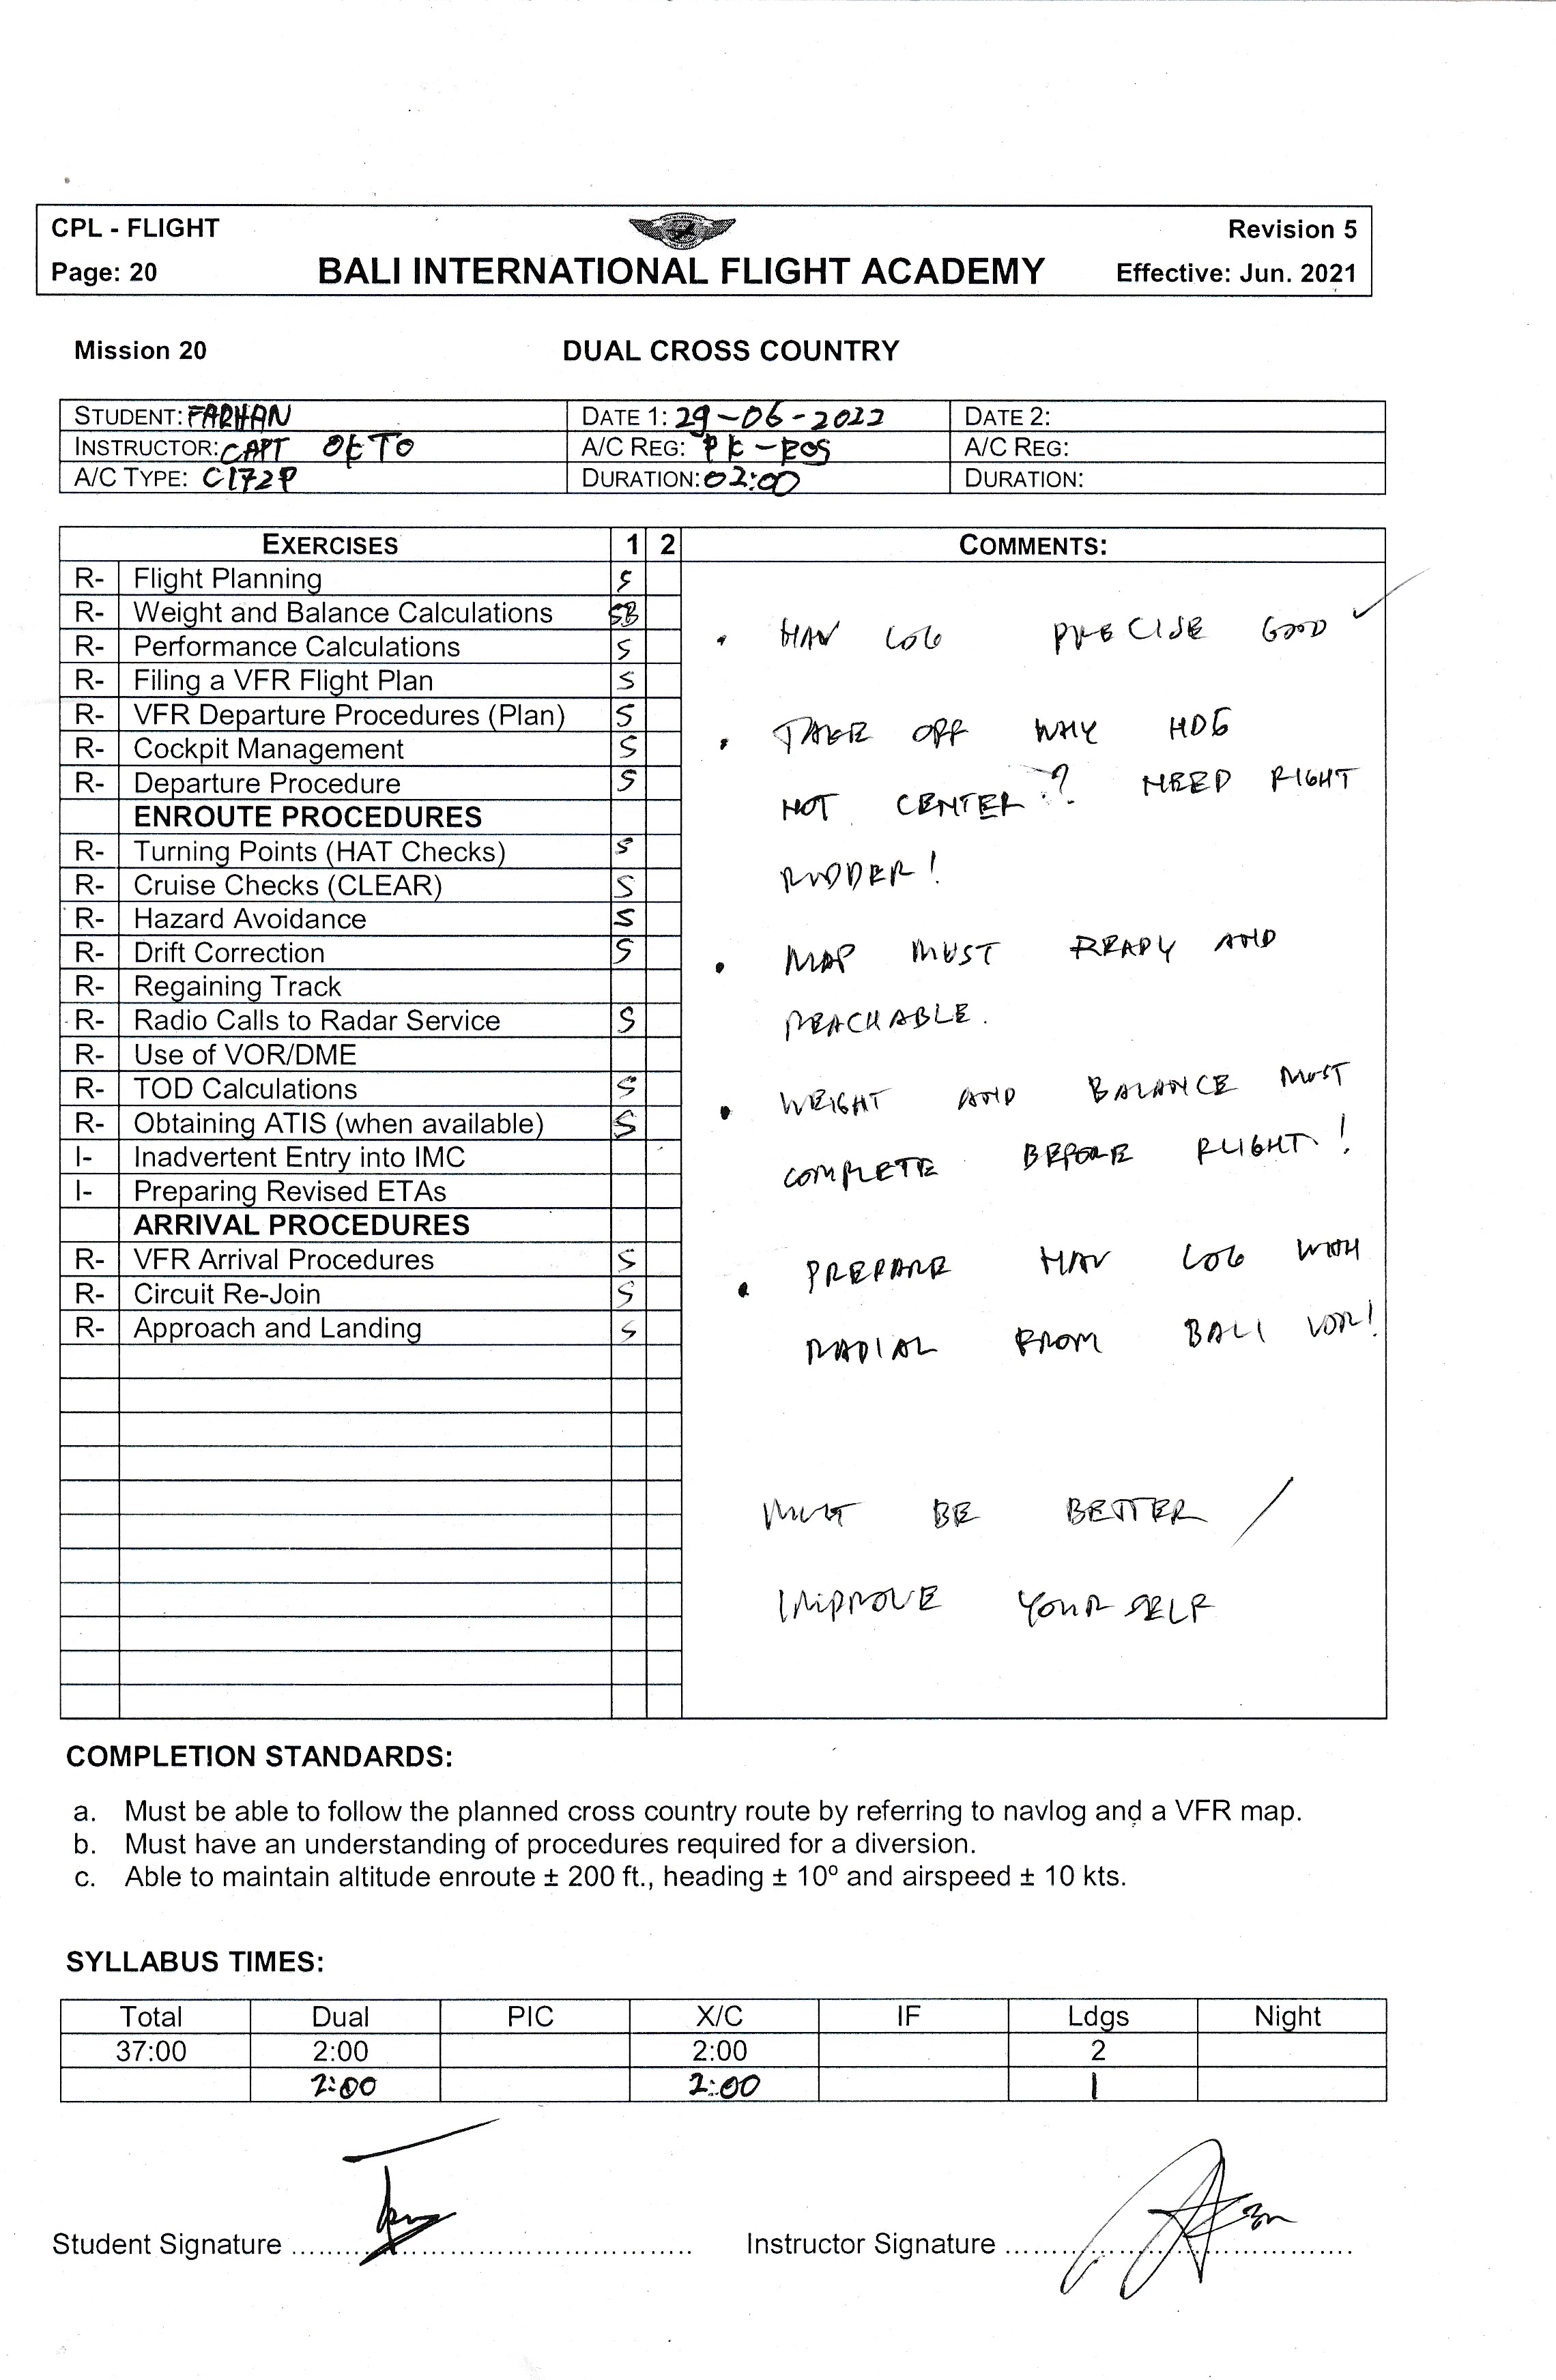 CPL - FLIGHT
Revision 5
Page: 20
BALI INTERNATIONAL FLIGHT ACADEMY
Effective: Jun. 2021
Mission 20
DUAL CROSS COUNTRY
STUDENT: FARHAN
DATE 1: 29-06-2022
DATE 2:
INSTRUCTOR: CAPT OKTO
A/C REG: PK-ROS
A/C REG:
A/C TYPE: C172P
DURATION: 02:00
DURATION:
EXERCISES 1 2
R- Flight Planning S
R- Weight and Balance Calculations SB
R- Performance Calculations S
R- Filing a VFR Flight Plan S
R- VFR Departure Procedures (Plan) S
R- Cockpit Management S
R- Departure Procedure S
ENROUTE PROCEDURES
R- Turning Points (HAT Checks) S
R- Cruise Checks (CLEAR) S
R- Hazard Avoidance S
R- Drift Correction S
R- Regaining Track
R- Radio Calls to Radar Service S
R- Use of VOR/DME
R- TOD Calculations S
R- Obtaining ATIS (when available) S
I- Inadvertent Entry into IMC
I- Preparing Revised ETAs
ARRIVAL PROCEDURES
R- VFR Arrival Procedures S
R- Circuit Re-Join S
R- Approach and Landing S
COMMENTS:
• NAV LOG PRECISE GOOD ✓
• TAKE OFF WHY HDG
NOT CENTER ? NEED RIGHT
RUDDER!
• MAP MUST READY AND
REACHABLE.
• WEIGHT AND BALANCE MUST
COMPLETE BEFORE FLIGHT!
• PREPARE NAV LOG WITH
RADIAL FROM BALI VOR!
MUST BE BETTER /
IMPROVE YOUR SELF
COMPLETION STANDARDS:
a. Must be able to follow the planned cross country route by referring to navlog and a VFR map.
b. Must have an understanding of procedures required for a diversion.
c. Able to maintain altitude enroute ± 200 ft., heading ± 10º and airspeed ± 10 kts.
SYLLABUS TIMES:
Total Dual PIC X/C IF Ldgs Night
37:00 2:00 2:00 2
2:00 2:00 1
Student Signature ....................
Instructor Signature ....................